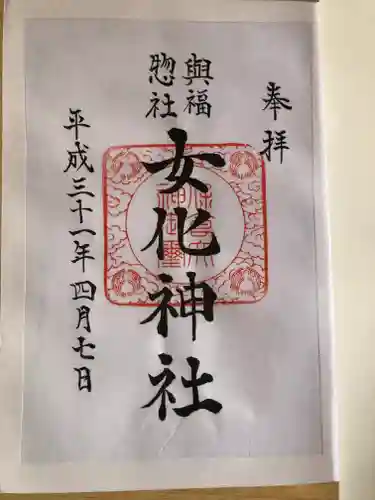 奉拝
興福
惣社
女化神社
平成三十一年四月七日